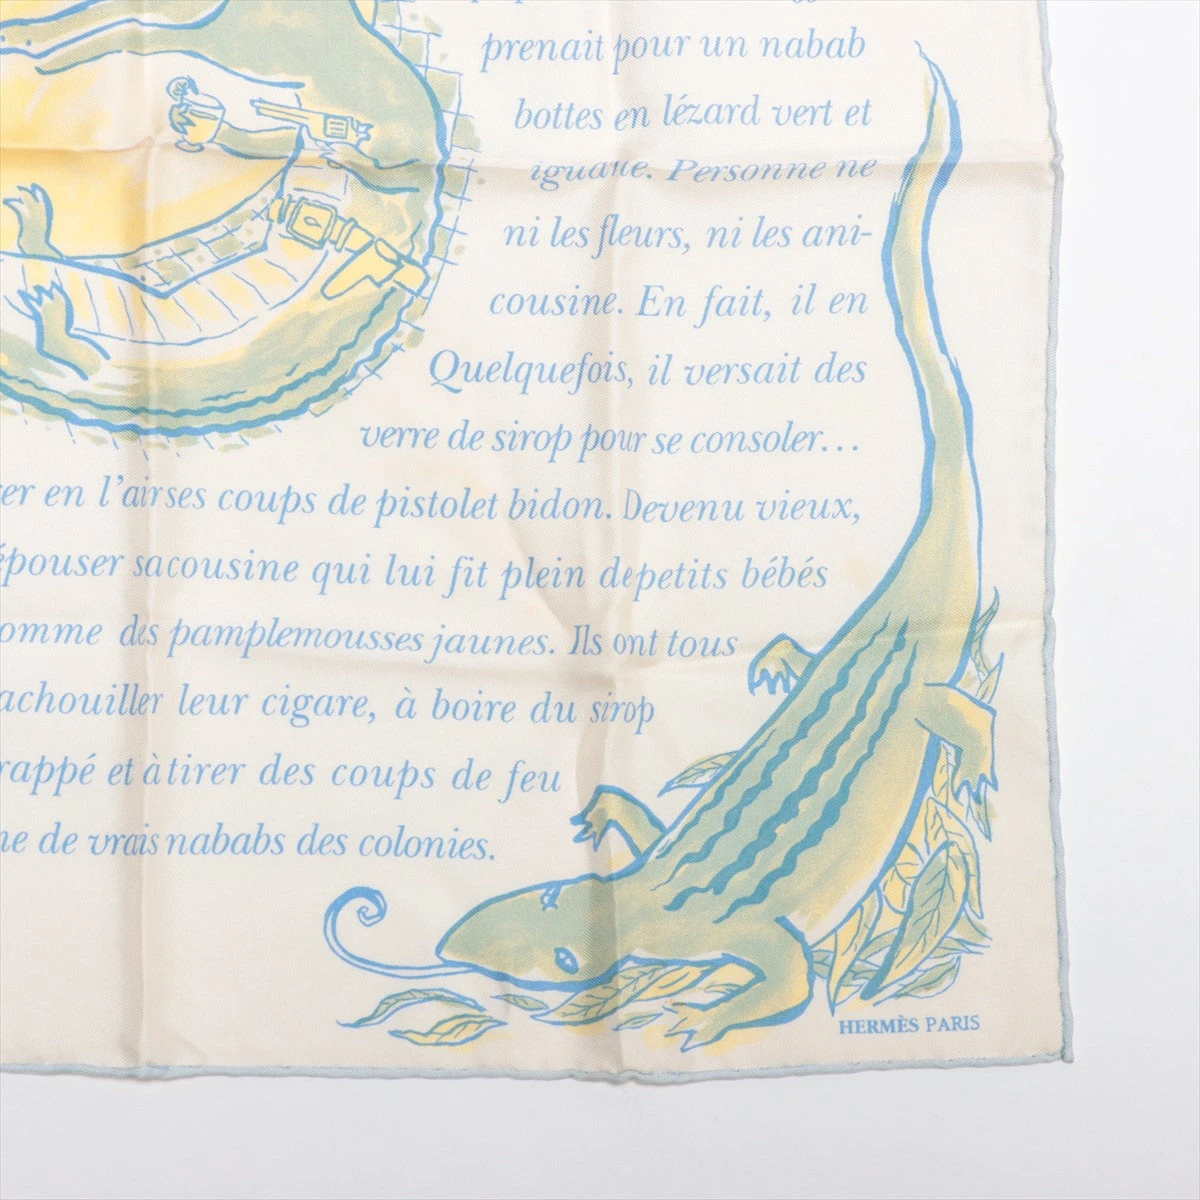 prenait pour un nabab
bottes en lézard vert et
iguane. Personne ne
ni les fleurs, ni les ani-
cousine. En fait, il en
Quelquefois, il versait des
verre de sirop pour se consoler...
er en l'air ses coups de pistolet bidon. Devenu vieux,
épouser sa cousine qui lui fit plein de petits bébés
omme des pamplemousses jaunes. Ils ont tous
achouiller leur cigare, à boire du sirop
rappé et à tirer des coups de feu
ne de vrais nababs des colonies.
HERMÈS PARIS